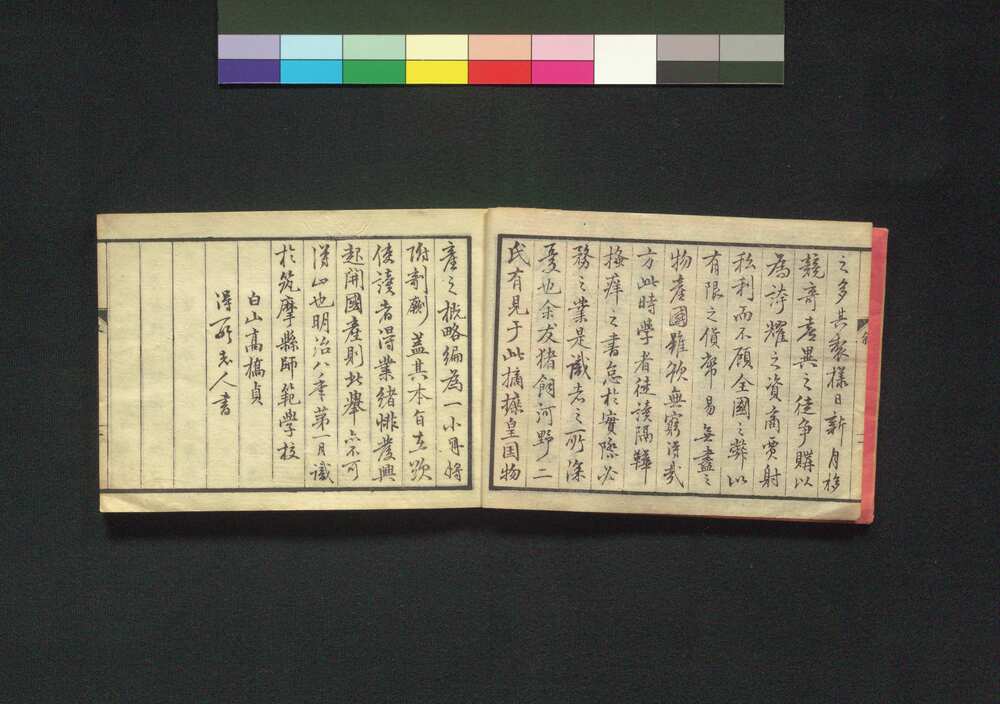 之多其製様日新月移
競奇老異之徒争購以
為誇耀之資商賈射
私利而不顧全國之弊以
有限之貨幣易無盡之
物產國雖欲無窮得哉
方此時學者徒讀隔靴
掻痒之書怠於實際必
務之業是識者之所深
憂也余友猪飼河野二
氏有見于此摘採皇国物
產之概略編為一小冊将
附剞劂蓋其本旨在欲
使讀者得業緒悱發興
起開國產則此舉亦不可
得止也明治八年第一月識
於筑摩縣師範学校
白山高橋貞
得所老人書